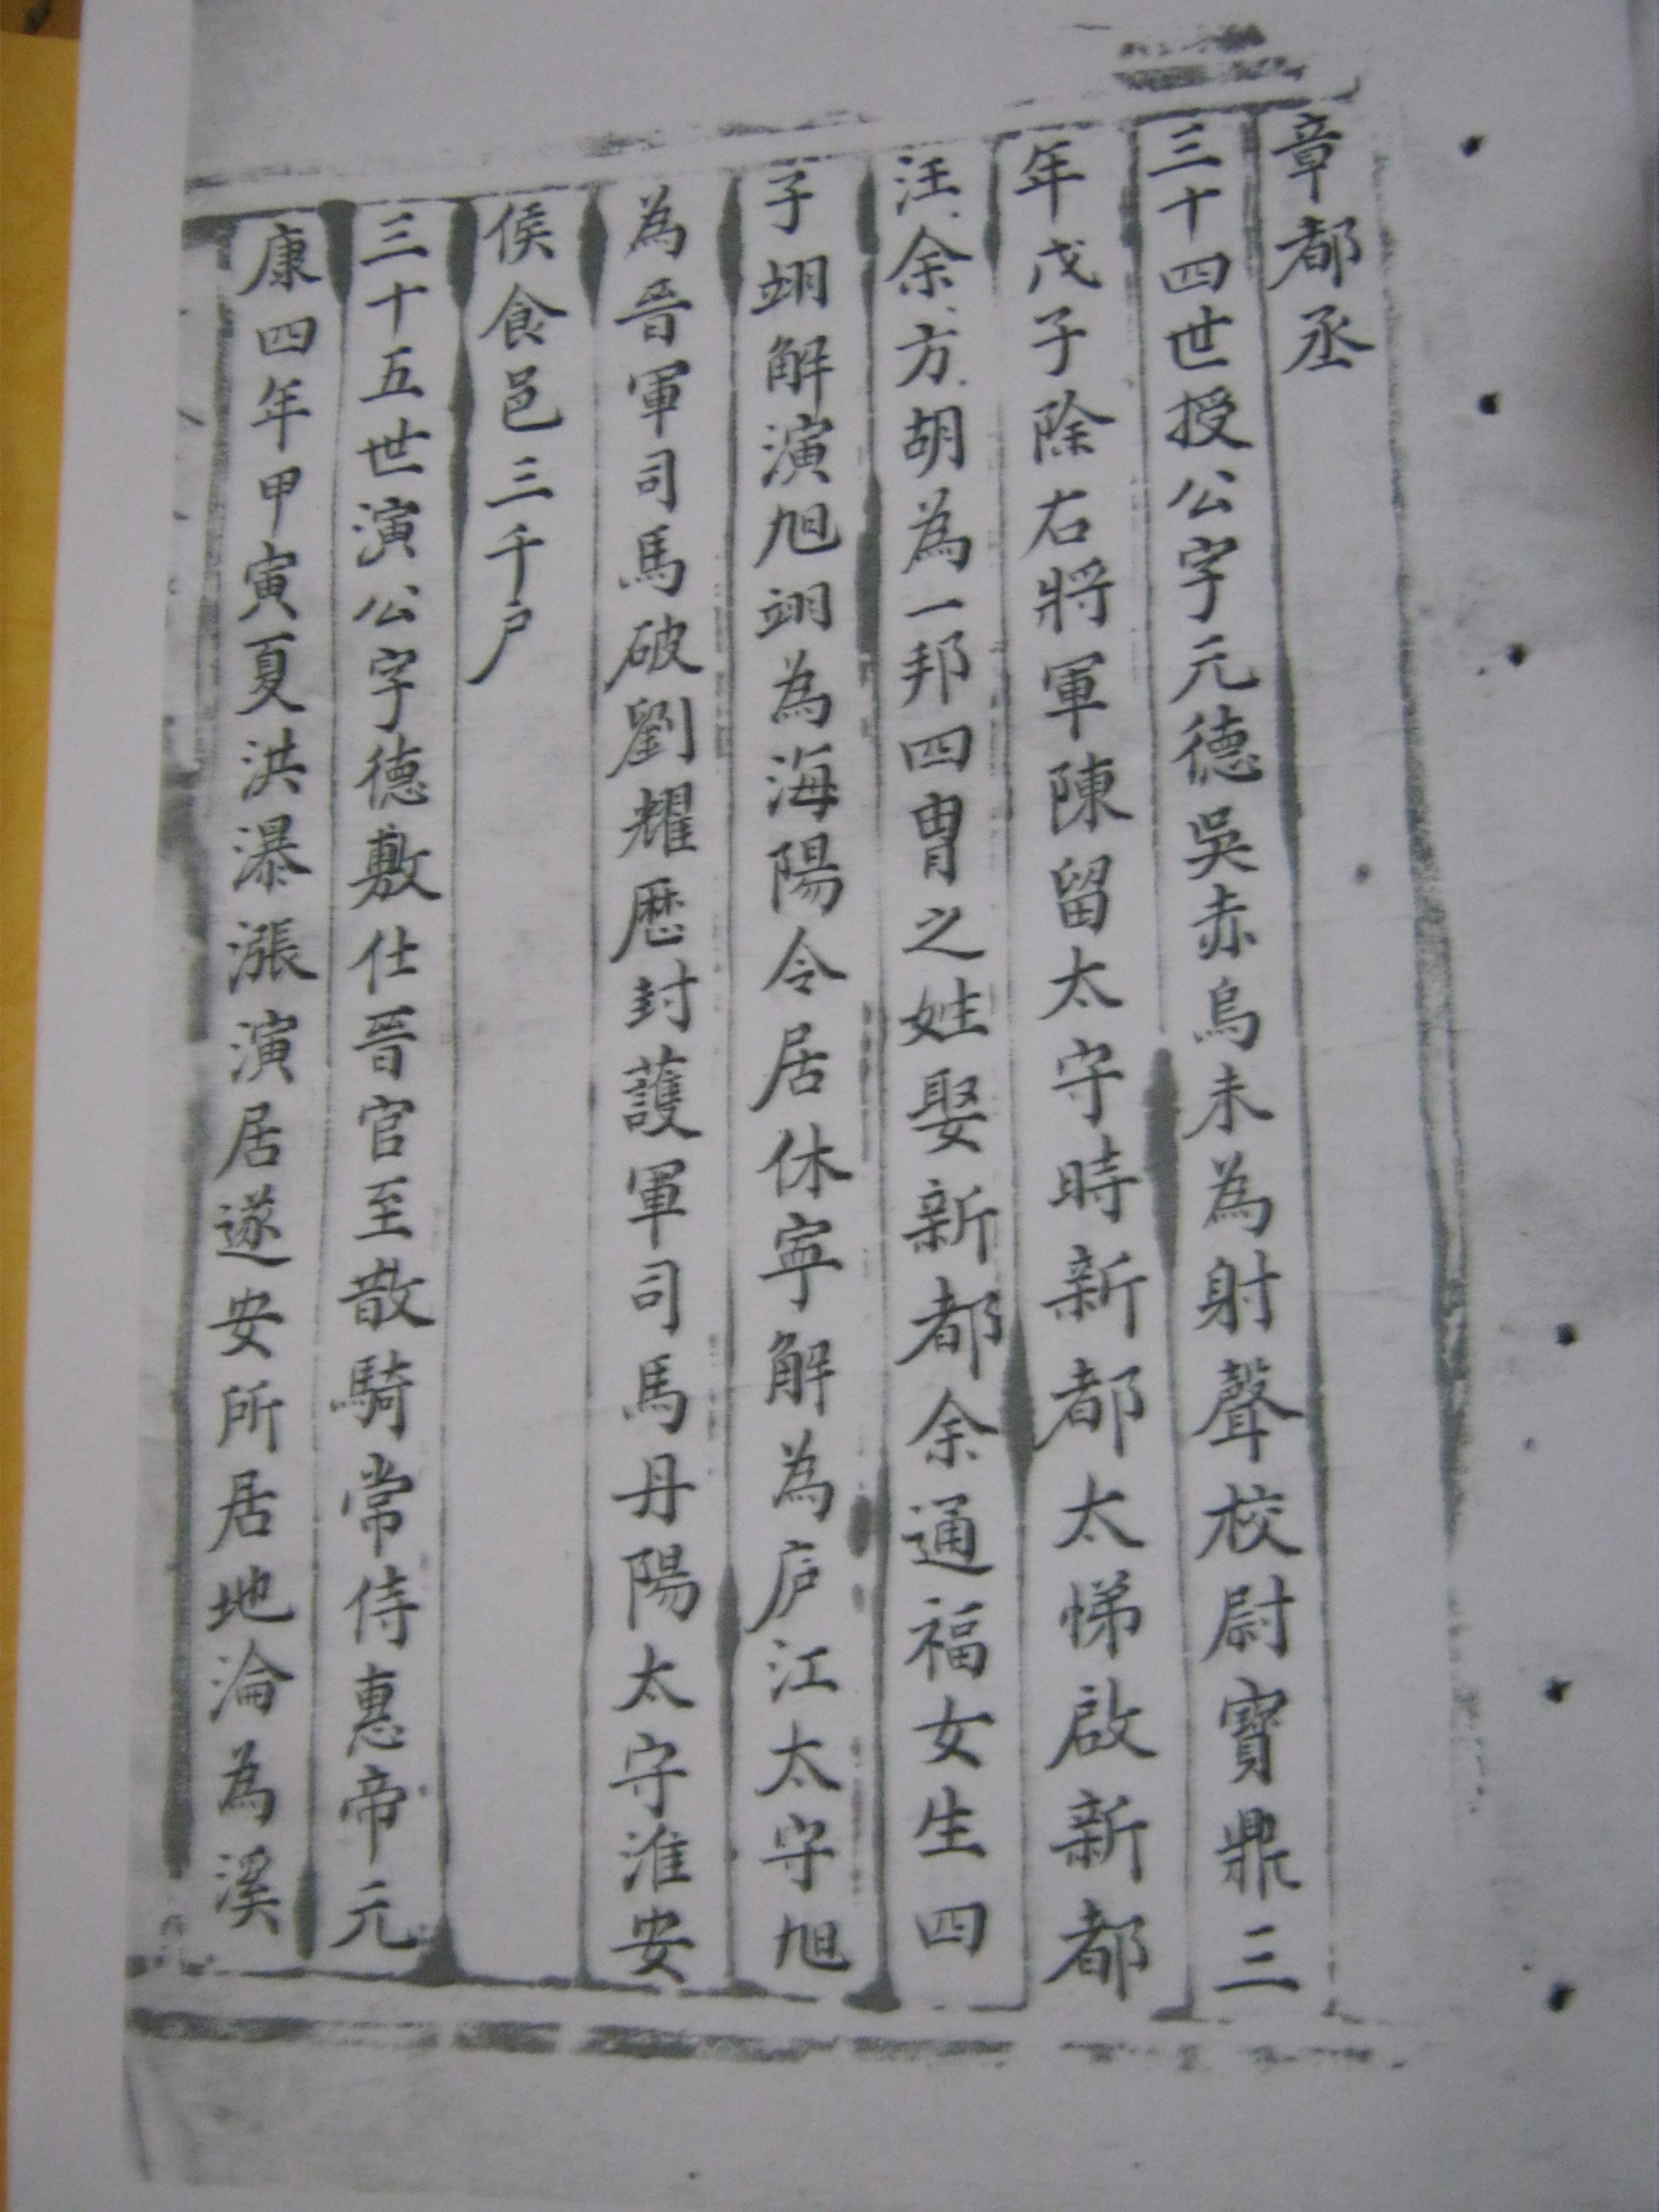 章都丞
三十四世授公字元德吳赤烏末為射聲校尉寶鼎三
年戊子除右將軍陳留太守時新都太悌啟新都
汪余方胡為一邦四胄之姓娶新都余通福女生四
子翊解演旭翊為海陽令居休寧解為庐江太守旭
為晉軍司馬破劉耀歷封護軍司馬丹陽太守淮安
侯食邑三千户
三十五世演公字德敷仕晉官至散騎常侍惠帝元
康四年甲寅夏洪瀑漲演居遂安所居地淪為溪